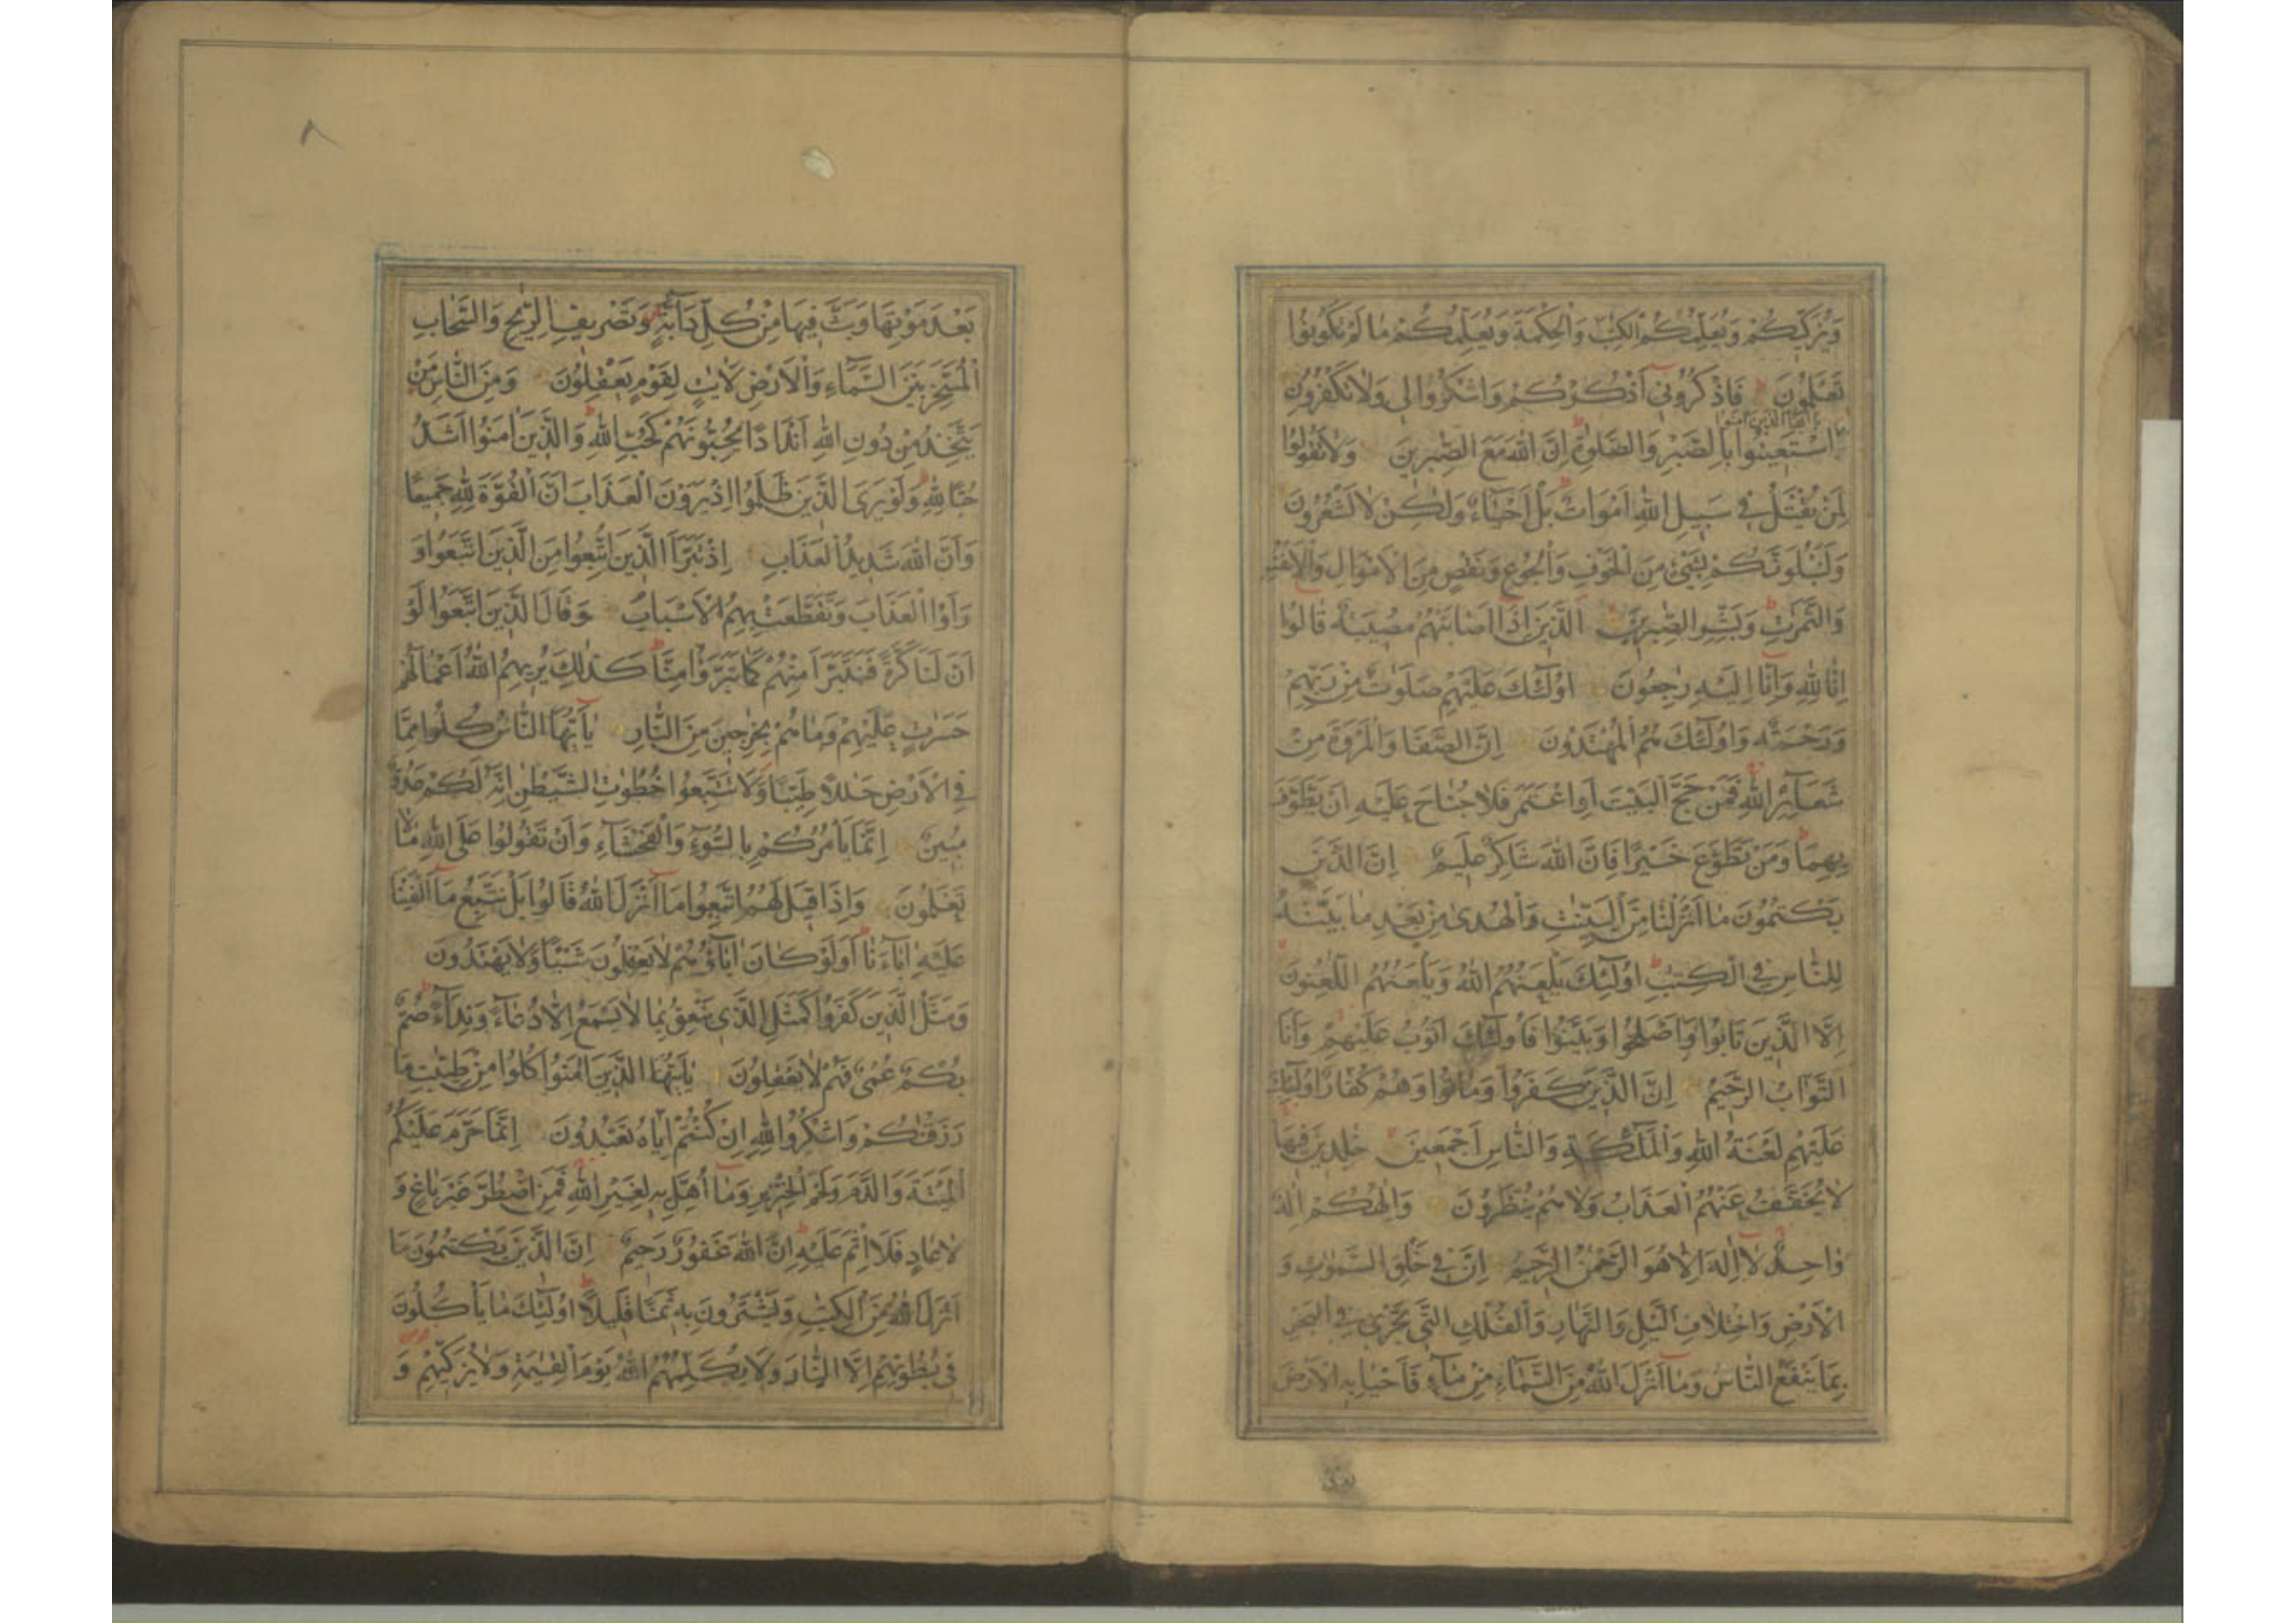 وَيُزَكِّيكُمْ وَيُعَلِّمُكُمُ الْكِتٰبَ وَالْحِكْمَةَ وَيُعَلِّمُكُمْ مَا لَمْ تَكُونُوا
تَعْلَمُونَ فَاذْكُرُونِي أَذْكُرْكُمْ وَاشْكُرُوا لِي وَلَا تَكْفُرُونِ
يَا أَيُّهَا الَّذِينَ آمَنُوا
اسْتَعِينُوا بِالصَّبْرِ وَالصَّلٰوةِ إِنَّ اللهَ مَعَ الصّٰبِرِينَ وَلَا تَقُولُوا
لِمَنْ يُقْتَلُ فِي سَبِيلِ اللهِ أَمْوَاتٌ بَلْ أَحْيَاءٌ وَلٰكِنْ لَا تَشْعُرُونَ
وَلَنَبْلُوَنَّكُمْ بِشَيْءٍ مِنَ الْخَوْفِ وَالْجُوعِ وَنَقْصٍ مِنَ الْأَمْوَالِ وَالْأَنْفُسِ
وَالثَّمَرٰتِ وَبَشِّرِ الصّٰبِرِينَ الَّذِينَ إِذَا أَصَابَتْهُمْ مُصِيبَةٌ قَالُوا
إِنَّا لِلّٰهِ وَإِنَّا إِلَيْهِ رٰجِعُونَ أُولٰئِكَ عَلَيْهِمْ صَلَوٰتٌ مِنْ رَبِّهِمْ
وَرَحْمَةٌ وَأُولٰئِكَ هُمُ الْمُهْتَدُونَ إِنَّ الصَّفَا وَالْمَرْوَةَ مِنْ
شَعَآئِرِ اللهِ فَمَنْ حَجَّ الْبَيْتَ أَوِ اعْتَمَرَ فَلَا جُنَاحَ عَلَيْهِ أَنْ يَطَّوَّفَ
بِهِمَا وَمَنْ تَطَوَّعَ خَيْرًا فَإِنَّ اللهَ شَاكِرٌ عَلِيمٌ إِنَّ الَّذِينَ
يَكْتُمُونَ مَا أَنْزَلْنَا مِنَ الْبَيِّنٰتِ وَالْهُدٰى مِنْ بَعْدِ مَا بَيَّنّٰهُ
لِلنَّاسِ فِي الْكِتٰبِ أُولٰئِكَ يَلْعَنُهُمُ اللهُ وَيَلْعَنُهُمُ اللّٰعِنُونَ
إِلَّا الَّذِينَ تَابُوا وَأَصْلَحُوا وَبَيَّنُوا فَأُولٰئِكَ أَتُوبُ عَلَيْهِمْ وَأَنَا
التَّوَّابُ الرَّحِيمُ إِنَّ الَّذِينَ كَفَرُوا وَمَاتُوا وَهُمْ كُفَّارٌ أُولٰئِكَ
عَلَيْهِمْ لَعْنَةُ اللهِ وَالْمَلٰئِكَةِ وَالنَّاسِ أَجْمَعِينَ خٰلِدِينَ فِيهَا
لَا يُخَفَّفُ عَنْهُمُ الْعَذَابُ وَلَا هُمْ يُنْظَرُونَ وَإِلٰهُكُمْ إِلٰهٌ
وٰاحِدٌ لَا إِلٰهَ إِلَّا هُوَ الرَّحْمٰنُ الرَّحِيمُ إِنَّ فِي خَلْقِ السَّمٰوٰتِ وَ
الْأَرْضِ وَاخْتِلَافِ الَّيْلِ وَالنَّهَارِ وَالْفُلْكِ الَّتِي تَجْرِي فِي الْبَحْرِ
بِمَا يَنْفَعُ النَّاسَ وَمَا أَنْزَلَ اللهُ مِنَ السَّمَآءِ مِنْ مَآءٍ فَأَحْيَا بِهِ الْأَرْضَ
بعد
٨
بَعْدَ مَوْتِهَا وَبَثَّ فِيهَا مِنْ كُلِّ دَآبَّةٍ وَتَصْرِيفِ الرِّيٰحِ وَالسَّحَابِ
الْمُسَخَّرِ بَيْنَ السَّمَآءِ وَالْأَرْضِ لَاٰيٰتٍ لِقَوْمٍ يَعْقِلُونَ وَمِنَ النَّاسِ مَنْ
يَتَّخِذُ مِنْ دُونِ اللهِ أَنْدَادًا يُحِبُّونَهُمْ كَحُبِّ اللهِ وَالَّذِينَ اٰمَنُوا أَشَدُّ
حُبًّا لِلّٰهِ وَلَوْ يَرَى الَّذِينَ ظَلَمُوا إِذْ يَرَوْنَ الْعَذَابَ أَنَّ الْقُوَّةَ لِلّٰهِ جَمِيعًا
وَأَنَّ اللهَ شَدِيدُ الْعَذَابِ إِذْ تَبَرَّأَ الَّذِينَ اتُّبِعُوا مِنَ الَّذِينَ اتَّبَعُوا وَ
رَأَوُا الْعَذَابَ وَتَقَطَّعَتْ بِهِمُ الْأَسْبَابُ وَقَالَ الَّذِينَ اتَّبَعُوا لَوْ
أَنَّ لَنَا كَرَّةً فَنَتَبَرَّأَ مِنْهُمْ كَمَا تَبَرَّءُوا مِنَّا كَذٰلِكَ يُرِيهِمُ اللهُ أَعْمَالَهُمْ
حَسَرٰتٍ عَلَيْهِمْ وَمَا هُمْ بِخٰرِجِينَ مِنَ النَّارِ يٰأَيُّهَا النَّاسُ كُلُوا مِمَّا
فِي الْأَرْضِ حَلٰلًا طَيِّبًا وَلَا تَتَّبِعُوا خُطُوٰتِ الشَّيْطٰنِ إِنَّهُ لَكُمْ عَدُوٌّ
مُبِينٌ إِنَّمَا يَأْمُرُكُمْ بِالسُّوءِ وَالْفَحْشَآءِ وَأَنْ تَقُولُوا عَلَى اللهِ مَا لَا
تَعْلَمُونَ وَإِذَا قِيلَ لَهُمُ اتَّبِعُوا مَا أَنْزَلَ اللهُ قَالُوا بَلْ نَتَّبِعُ مَا أَلْفَيْنَا
عَلَيْهِ اٰبَآءَنَا أَوَلَوْ كَانَ اٰبَآؤُهُمْ لَا يَعْقِلُونَ شَيْئًا وَلَا يَهْتَدُونَ
وَمَثَلُ الَّذِينَ كَفَرُوا كَمَثَلِ الَّذِي يَنْعِقُ بِمَا لَا يَسْمَعُ إِلَّا دُعَآءً وَنِدَآءً صُمٌّ
بُكْمٌ عُمْيٌ فَهُمْ لَا يَعْقِلُونَ يٰأَيُّهَا الَّذِينَ اٰمَنُوا كُلُوا مِنْ طَيِّبٰتِ مَا
رَزَقْنٰكُمْ وَاشْكُرُوا لِلّٰهِ إِنْ كُنْتُمْ إِيَّاهُ تَعْبُدُونَ إِنَّمَا حَرَّمَ عَلَيْكُمُ
الْمَيْتَةَ وَالدَّمَ وَلَحْمَ الْخِنْزِيرِ وَمَا أُهِلَّ بِهِ لِغَيْرِ اللهِ فَمَنِ اضْطُرَّ غَيْرَ بَاغٍ وَ
لَا عَادٍ فَلَا إِثْمَ عَلَيْهِ إِنَّ اللهَ غَفُورٌ رَحِيمٌ إِنَّ الَّذِينَ يَكْتُمُونَ مَا
أَنْزَلَ اللهُ مِنَ الْكِتٰبِ وَيَشْتَرُونَ بِهِ ثَمَنًا قَلِيلًا أُولٰئِكَ مَا يَأْكُلُونَ
فِي بُطُونِهِمْ إِلَّا النَّارَ وَلَا يُكَلِّمُهُمُ اللهُ يَوْمَ الْقِيٰمَةِ وَلَا يُزَكِّيهِمْ وَ